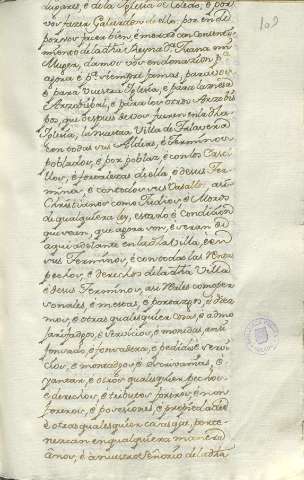 lugares, è de la Iglesia de Toledo, è por
vos fazer Galardon de ello, por ende
por vos fazer bien, è merced con consenti-
miento de la dha Reyna Dª Juana mi
Muger, damos vos en donacion pª
agora è pª siempre jamas, para vos
è para vuestra Iglesia, è para la mesa
Arzobispal, è para los otros Arzobis-
pos, que despues de vos fueren en la dha
Iglesia, la nuestra Villa de Talavera
con todas sus Aldeas, è Terminos
poblados, è por poblar, è con los Casti-
llos, è fortalezas de ella, è de sus Ter-
minos, è con todos sus Vasallos, asi
Christianos como Judios, è Moros
de qualquiera ley, estado è Condicion
que sean, que agora son, è seran de
aqui adelante en la dha Villa, è en
sus Terminos, è con todas las Rentas
pechos, è derechos de la dha Villa
è de sus Terminos, asi Reales como per-
sonales, è mestas, è portazgos, è
mos, è otras qualesquier cosas, è almo-
jarifadgos, è servicios, è monedas, asi
fonsado, è fonsadera, è pedidos è servi-
cios, è montadgos, è
yantar, è otros qualesquier pechos
è derechos, è tributos foreros, è non
foreros, è posesiones, è propiedades
è otras qualesquier cosas que perte-
nezcan en qualquiera manera
à nos, è à nuestro Señorio de la dha